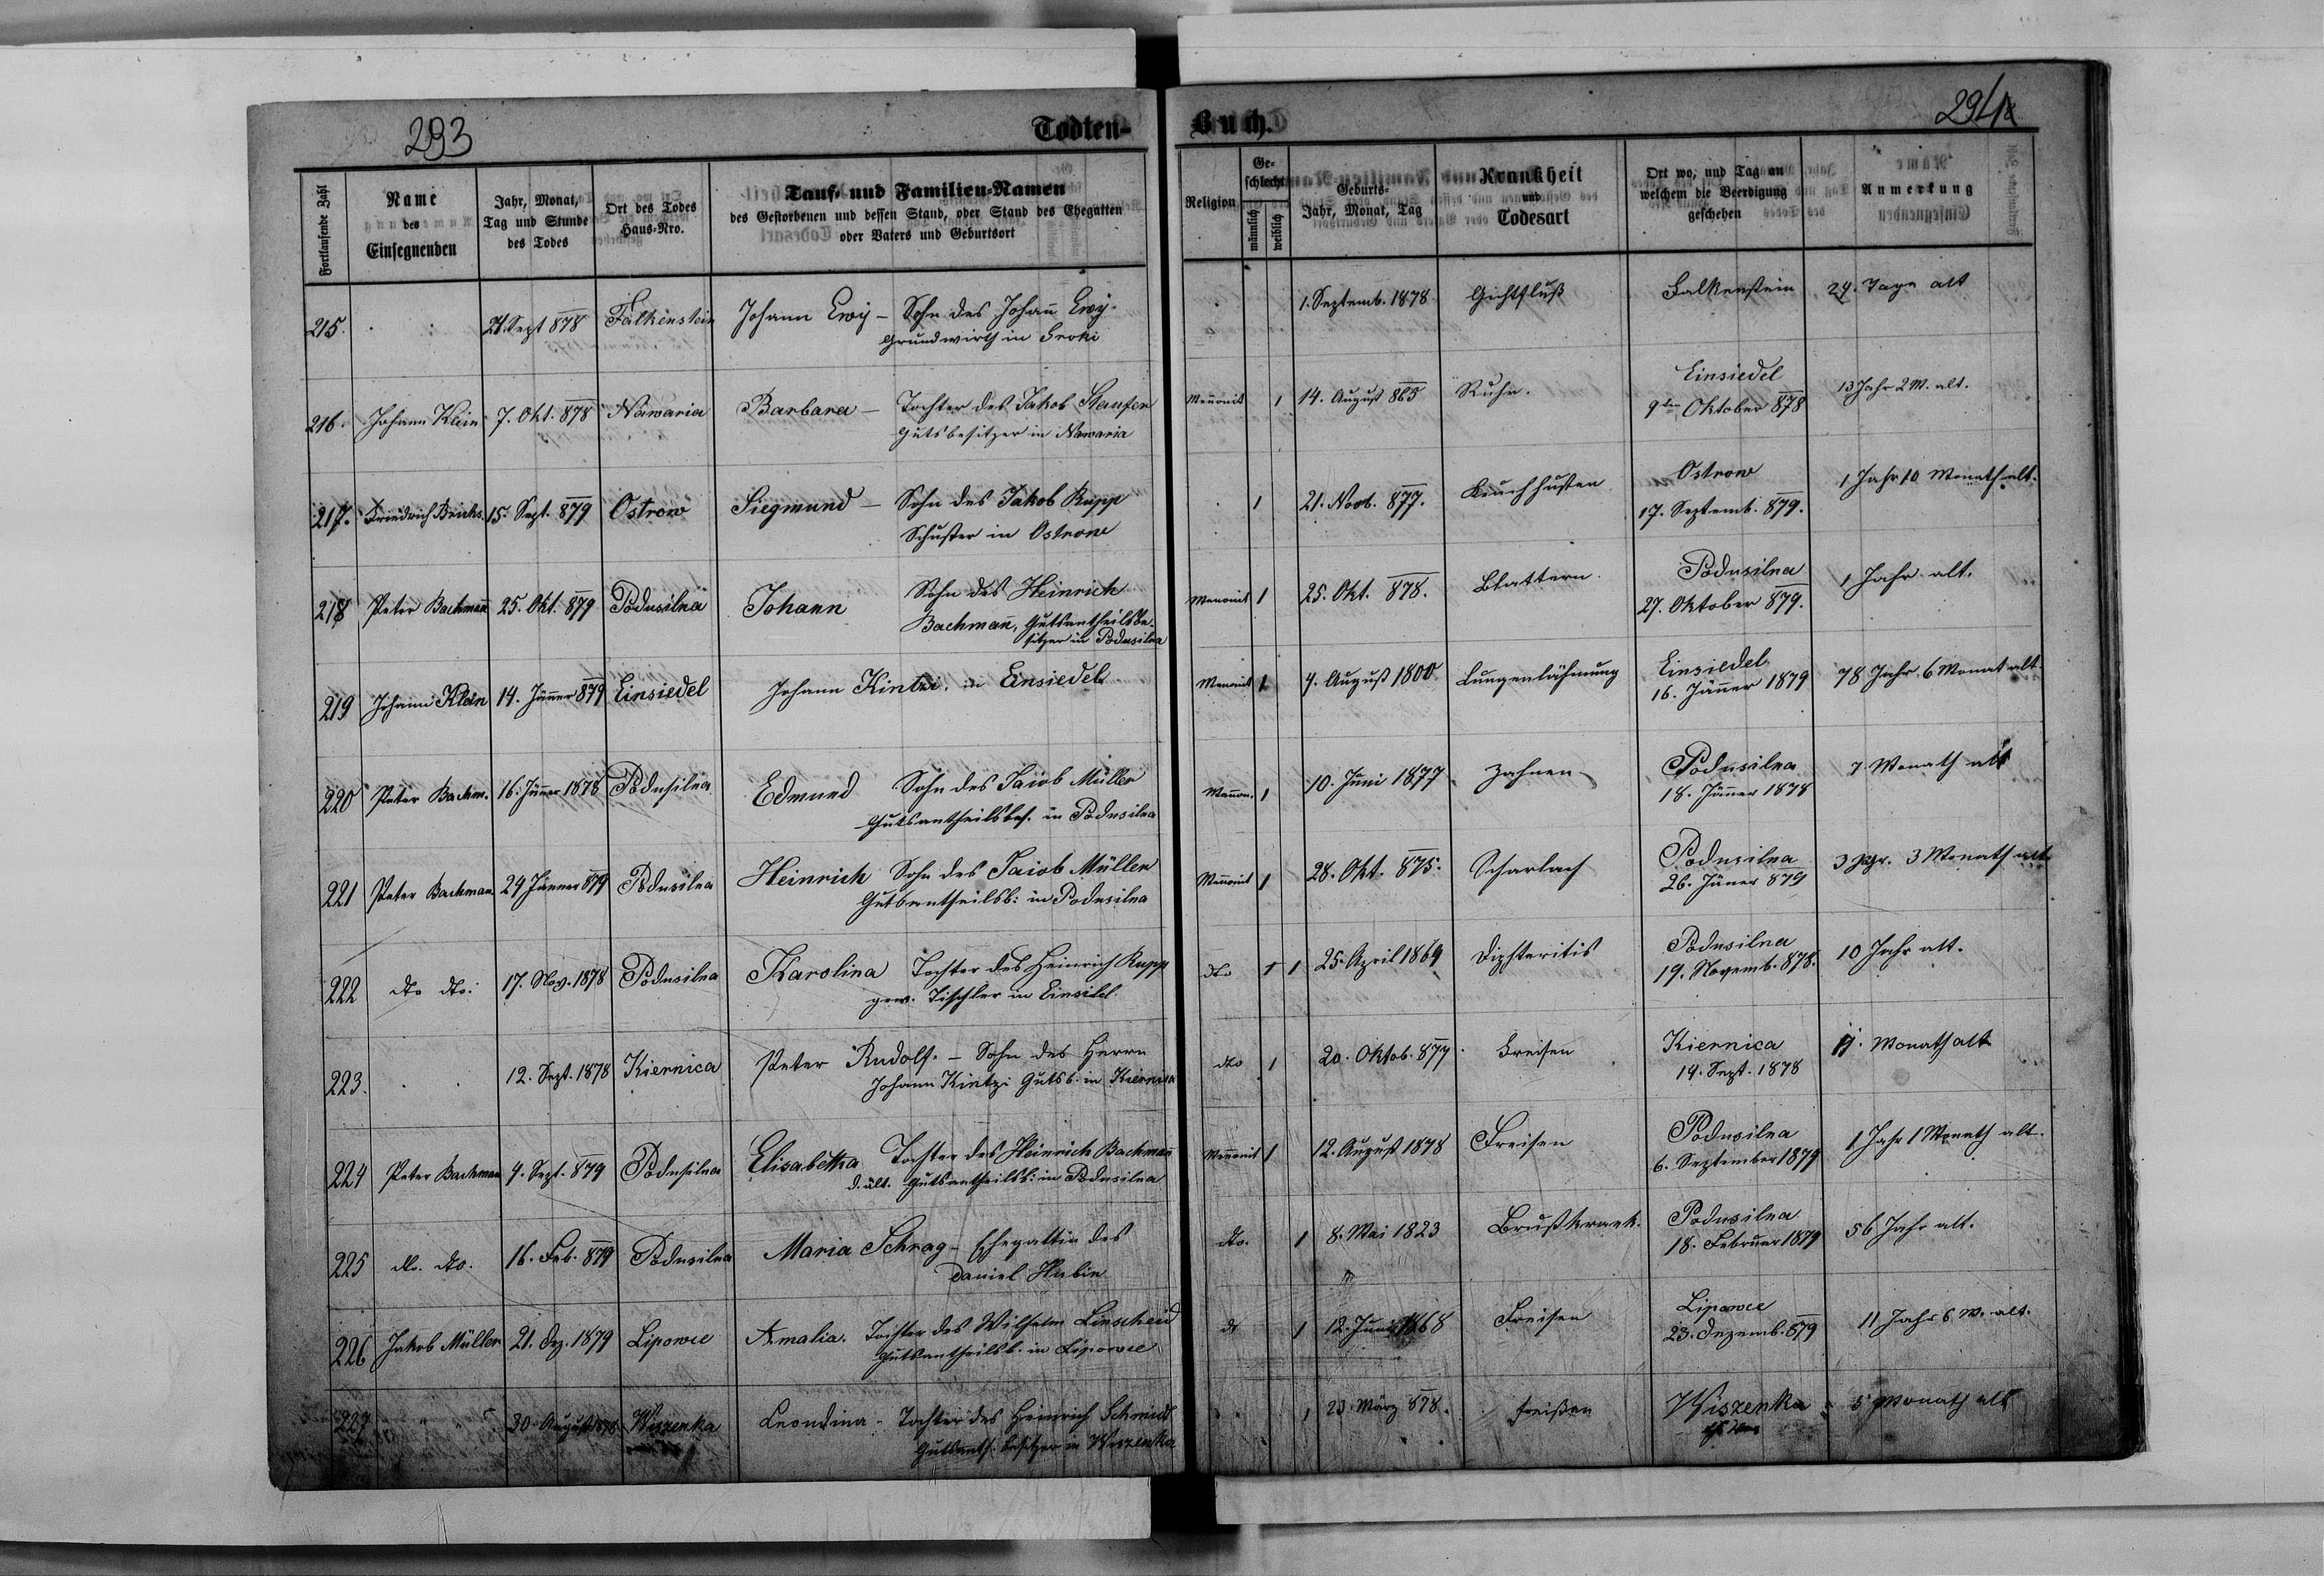 293
Todten-
Buch.
294
Fortlaufende Zahl
Name
des
Einsegnenden
Jahr, Monat,
Tag und Stunde
des Todes
Ort des Todes
Haus-Nro.
Tauf- und Familien-Namen
des Gestorbenen und dessen Stand, oder Stand des Ehegatten
oder Vaters und Geburtsort
Religion
Ge-
schlecht
männlich
weiblich
Geburts-
Jahr, Monat, Tag
Krankheit
und
Todesart
Ort wo, und Tag an
welchem die Beerdigung
geschehen
Anmerkung
215. 24. Sept 878 Falkenstein Johann Ewy – Sohn des Johann Ewy 1. Septemb. 1878 Gichtfluß Falkenstein 24. Tage alt
Grundwirth in
216. Johann Klein 7. Okt. 878 Nawaria Barbara – Tochter des Jakob Staufer Menonit 1 14. August 865 Ruhr. Einsiedel 13 Jahr 2 M. alt.
Gutsbesitzer in Nawaria 9ten Oktober 878
217. Friedrich Brichs. 15. Sept. 879 Ostrow Siegmund – Sohn des Jakob Rupp 1 21. Novb. 877. Keuchhusten Ostrow 1 Jahr 10 Monath alt.
Schuster in Ostrow 17. Septemb. 879.
218 Peter Bachmañ 25. Okt. 879 Podusilna Johann Sohn des Heinrich Menonit 1 25. Okt. 878. Blattern. Podusilna 1 Jahr alt.
Bachman, Gutsantheilsbe- 27. Oktober 879.
sitzer in Podusilna
219 Johann Klein 14. Jänner 879 Einsiedel Johann Kintzi. in Einsiedel Menonit 1 4. August 1800 Lungenlähmung Einsiedel 78 Jahr 6 Monat alt.
16. Jänner 1879
220 Peter Bachm. 16. Jänner 1878 Podusilna Edmund Sohn des Jaiob Müller Menon. 1 10. Juni 1877 Zahnen Podusilna 7 Monath alt
Gutsantheilsbes. in Podusilna 18. Jänner 1878
221 Peter Bachman. 24 Jänner 879 Podusilna Heinrich Sohn des Jaiob Müller Menonit 1 28. Okt. 875. Scharlach Podusilna 3 Jahr. 3 Monath alt
Gutsantheilsb: in Podusilna 26. Jäner 879
222 dto dto: 17. Nov. 1878 Podusilna Karolina Tochter des Heinrich Rupp dto 1 1 25. April 1869 Diphteritis Podusilna 10 Jahr alt.
gew. Tischler in Einsidel 19. Novemb. 878.
223. 12. Sept. 1878 Kiernica Peter Rudolf. – Sohn des Herrn dto 1 20. Oktob. 877. Freisen Kiernica 11. Monath alt
Johann Kintzi Gutsb. in Kiernica 14. Sept. 1878
224 Peter Bachman 4. Sept. 879 Podusilna Elisabetha Tochter des Heinrich Bachmañ Menonit 1 12. August 1878 Freisen Podusilna 1 Jahr 1 Monath alt.
d. ält. Gutsantheilsb: in Podusilna 6. September 1879
225 dto. dto. 16. Feb. 879 Podusilna Maria Schrag – Ehegattin des dto. 1 8. Mai 1823 Brustkrank. Podusilna 56 Jahr alt.
Daniel Hubin 18. Februar 1879
226 Jakob Müller 21. Dez. 1879 Lipowce Amalia. Tochter des Wilhelm Linscheid 1 12. Juni 1868 Freisen Lipowce 11 Jahr 6 M. alt.
Gutsantheilsb. in Lipowce 23. Dezemb. 879
227 30 August 1878 Wiszenka Leondina – Tochter des Heinrich Schmidt 1 23. März 878. freißen Wiszenka 5 Monath alt
Gutsanth. besitzer in Wiszenka